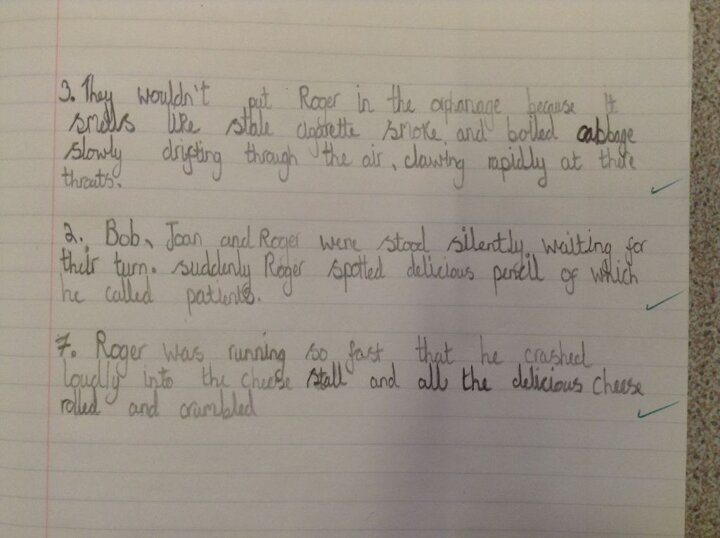 3. They wouldn't put Roger in the orphanage because It
smells like stale cigarette smoke and boiled cabbage
slowly drifting through the air, clawing rapidly at there
throats.
2. Bob, Joan and Roger were stood silently, waiting for
their turn. suddenly Roger spotted delicious pencil of which
he called patients.
7. Roger was running so fast that he crashed
loudly into the cheese stall and all the delicious cheese
rolled and crumbled